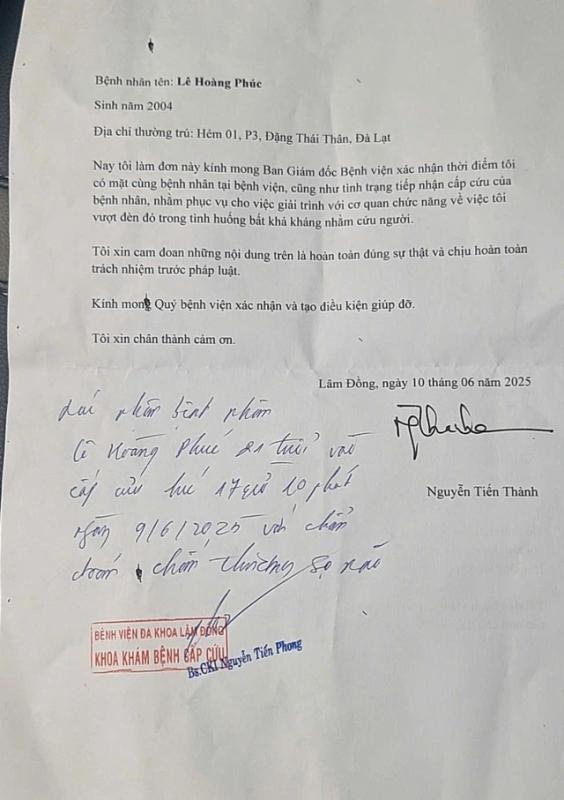 Bệnh nhân tên: Lê Hoàng Phúc
Sinh năm 2004
Địa chỉ thường trú: Hẻm 01, P3, Đặng Thái Thân, Đà Lạt
Nay tôi làm đơn này kính mong Ban Giám đốc Bệnh viện xác nhận thời điểm tôi
có mặt cùng bệnh nhân tại bệnh viện, cũng như tình trạng tiếp nhận cấp cứu của
bệnh nhân, nhằm phục vụ cho việc giải trình với cơ quan chức năng về việc tôi
vượt đèn đỏ trong tình huống bất khả kháng nhằm cứu người.
Tôi xin cam đoan những nội dung trên là hoàn toàn đúng sự thật và chịu hoàn toàn
trách nhiệm trước pháp luật.
Kính mong Quý bệnh viện xác nhận và tạo điều kiện giúp đỡ.
Tôi xin chân thành cảm ơn.
Lâm Đồng, ngày 10 tháng 06 năm 2025
Nguyễn Tiến Thành
bệnh nhân
Lê Hoàng Phúc 21 tuổi vào
cấp cứu lúc 17 giờ 10 phút
ngày 9/6/2025 với chẩn
đoán chấn thương sọ não
BỆNH VIỆN ĐA KHOA LÂM ĐỒNG
KHOA KHÁM BỆNH CẤP CỨU
Bs.CKI Nguyễn Tiến Phong